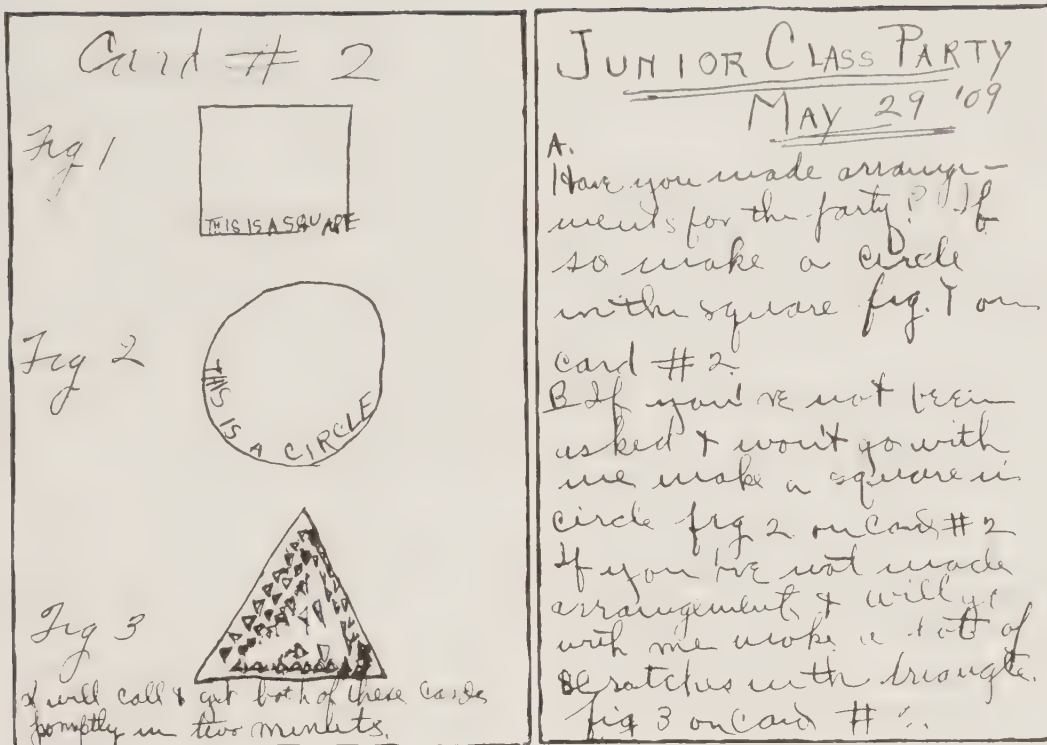 Card # 2
Fig 1
THIS IS A SQUARE
Fig 2
THIS IS A CIRCLE
Fig 3
I will call & get both of these cards
pomptly in two minuts.
JUNIOR CLASS PARTY
MAY 29 '09
A.
Have you made arrange-
ments for the party? If
so make a circle
in the square fig. 1 on
card # 2.
B If you've not been
asked & won't go with
me make a square in
circle fig 2 on Card # 2
If you've not made
arrangement, & will go
with me make a lot of
scratches in the triangle.
fig 3 on Card #